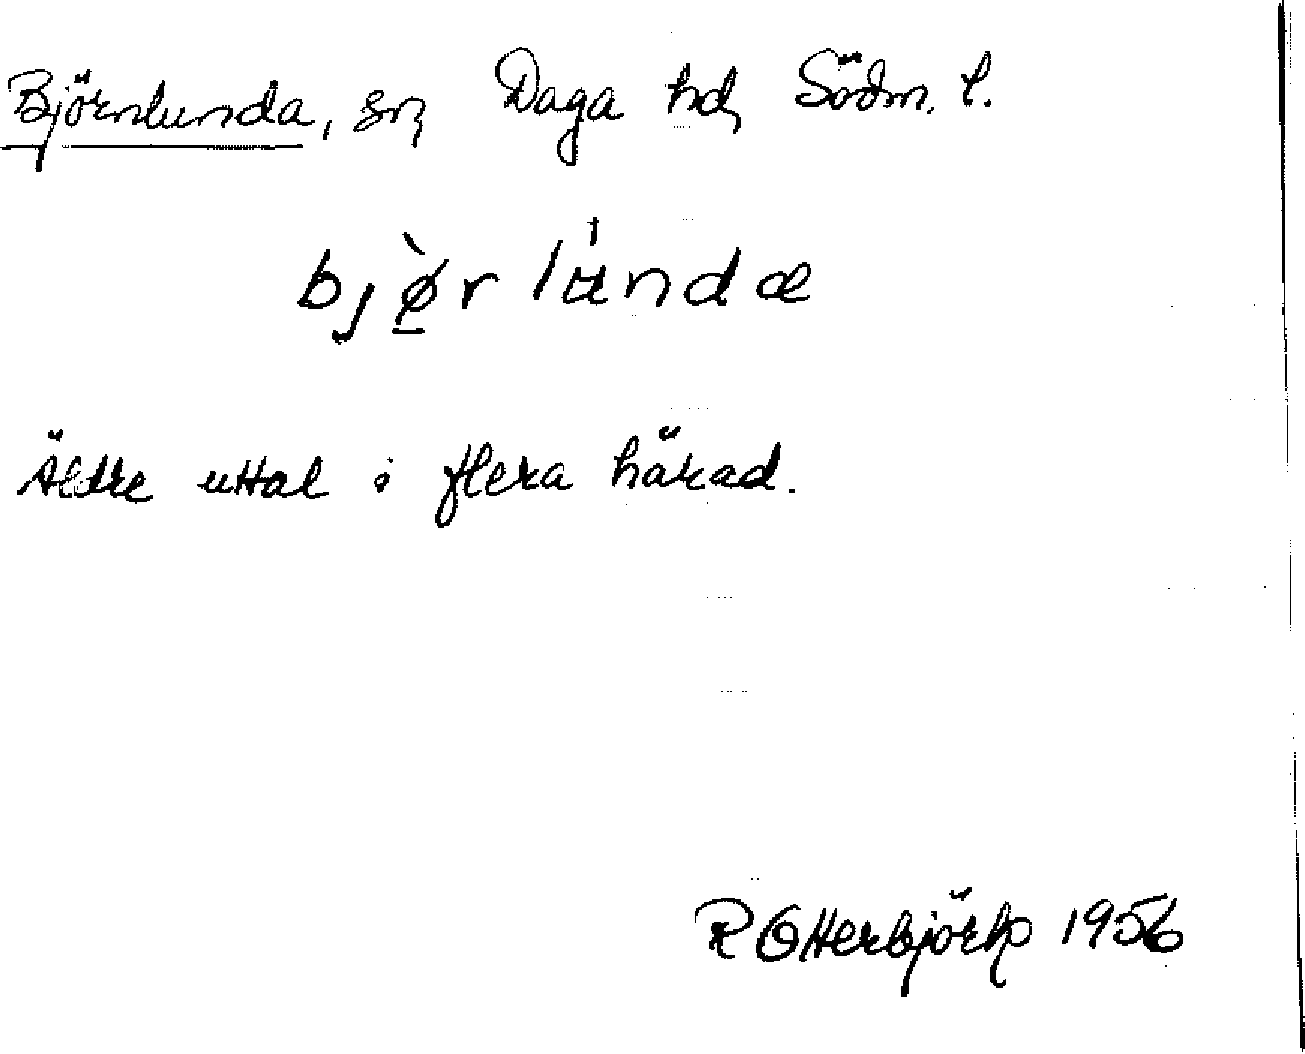 Björnlunda, sn, Daga hd, Södm. l.
bjø̀rlu̍ndæ
Äldre uttal i flera härad.
R Otterbjörk 1956